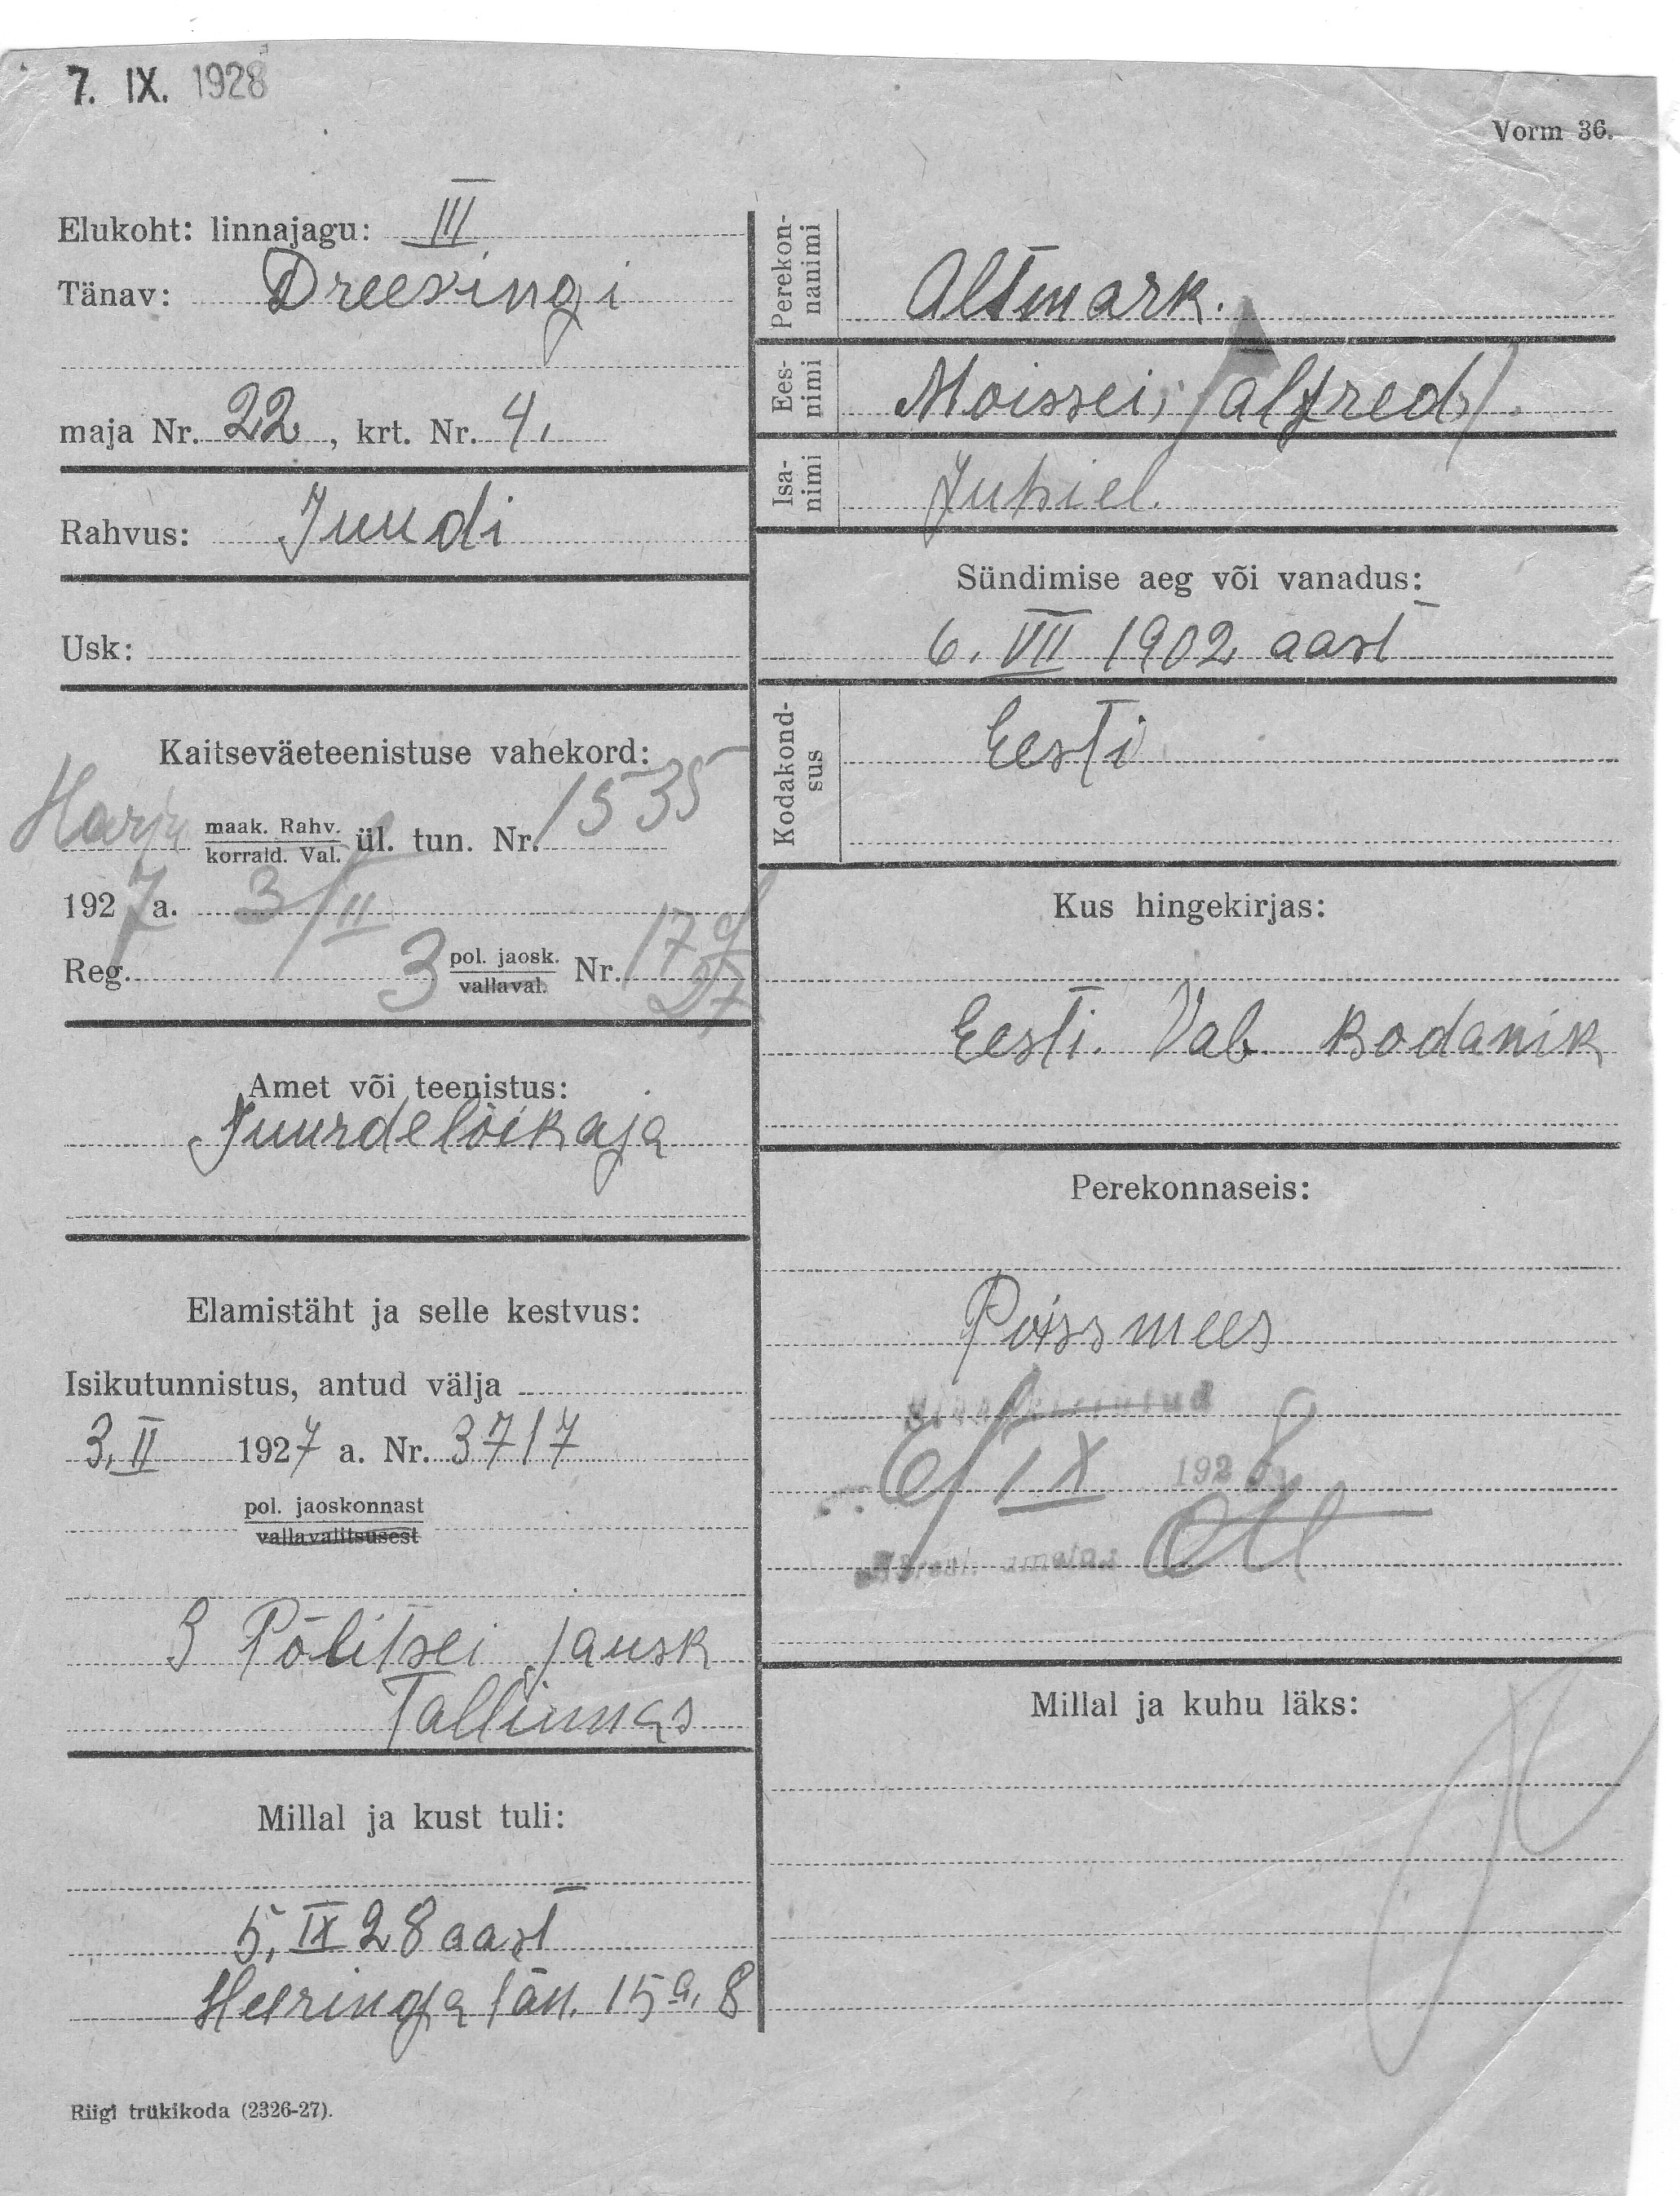 7. IX. 1928
Vorm 36.
Elukoht: linnajagu: III
Tänav: Dreesingi
maja Nr. 22, krt. Nr. 4.
Rahvus: Juudi
Usk:
Kaitseväeteenistuse vahekord:
Harju maak. Rahv. ül. tun. Nr. 1535
korrald. Val.
1927 a. 3/II
Reg. 3 pol. jaosk. Nr. 179
vallaval. 27
Amet või teenistus:
Juurdelõikaja
Elamistäht ja selle kestvus:
Isikutunnistus, antud välja
3. II 1927 a. Nr. 3717
pol. jaoskonnast
vallavalitsusest
3 Põlitsei jausk
Tallinnas
Millal ja kust tuli:
5. IX 28 aast
Heeringa tän. 15a. 8
Riigi trükikoda (2326-27).
Perekon-
nanimi
Altmark.
Ees-
nimi
Moissei, (Alfred).
Isa-
nimi
Juhiel.
Sündimise aeg või vanadus:
6. VII 1902 aast
Kodakond-
sus
Eesti
Kus hingekirjas:
Eesti. Vab. Kodanik
Perekonnaseis:
Poissmees
6/IX 1928
Millal ja kuhu läks: